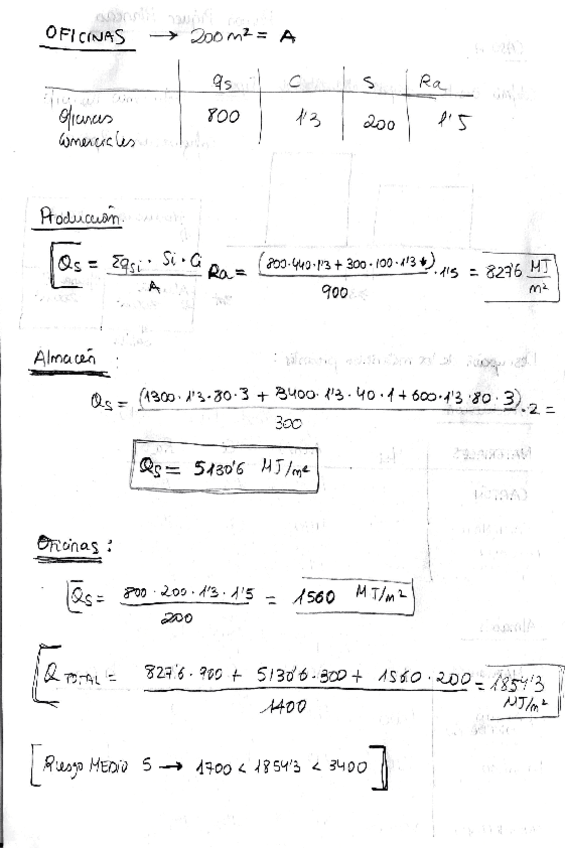 OFICINAS → 200 m² = A
qs C S Ra
Oficinas 800 1'3 200 1'5
Comerciales
Producción.
Qs = Σqsi · Si · Ci / A Ra = (800·440·1'3 + 300·100·1'3) / 900 · 1'5 = 827'6 MJ/m²
Almacén :
Qs = (1300·1'3·80·3 + 3400·1'3·40·1 + 600·1'3·80·3) / 300 · 2 =
Qs = 5130'6 MJ/m²
Oficinas :
Qs = 800 · 200 · 1'3 · 1'5 / 200 = 1560 MJ/m²
Q TOTAL = 827'6 · 900 + 5130'6 · 300 + 1560 · 200 / 1400 = 1854'3 MJ/m²
[Riesgo MEDIO 5 → 1700 < 1854'3 < 3400]